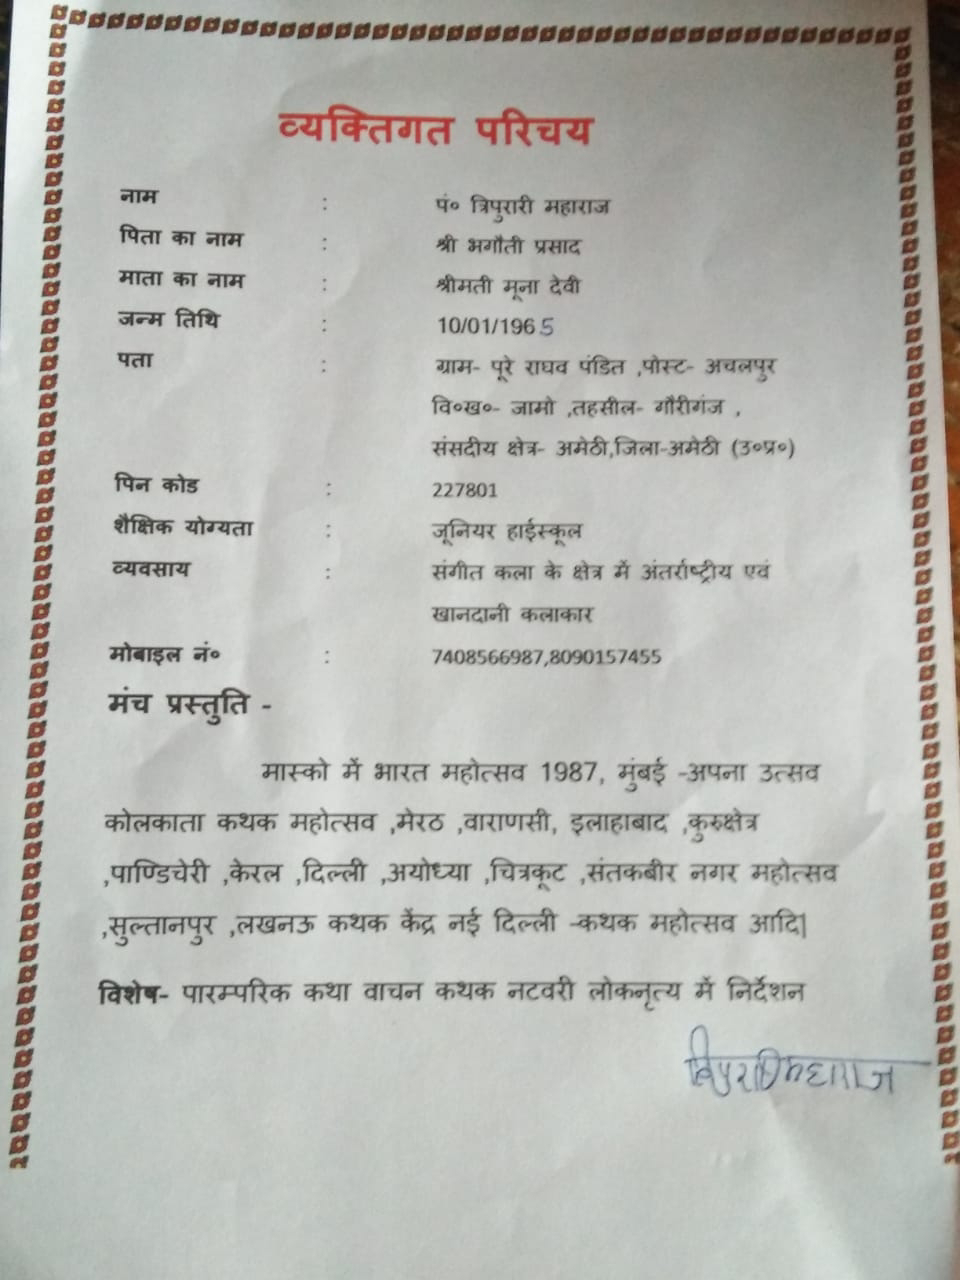 व्यक्तिगत परिचय
नाम : पं० त्रिपुरारी महाराज
पिता का नाम : श्री भगौती प्रसाद
माता का नाम : श्रीमती मूना देवी
जन्म तिथि : 10/01/1965
पता : ग्राम- पूरे राघव पंडित ,पोस्ट- अचलपुर
वि०ख०- जामो ,तहसील- गौरीगंज ,
संसदीय क्षेत्र- अमेठी,जिला-अमेठी (उ०प्र०)
पिन कोड : 227801
शैक्षिक योग्यता : जूनियर हाईस्कूल
व्यवसाय : संगीत कला के क्षेत्र में अंतर्राष्ट्रीय एवं
खानदानी कलाकार
मोबाइल नं० : 7408566987,8090157455
मंच प्रस्तुति -
मास्को में भारत महोत्सव 1987, मुंबई -अपना उत्सव
कोलकाता कथक महोत्सव ,मेरठ ,वाराणसी, इलाहाबाद ,कुरुक्षेत्र
,पाण्डिचेरी ,केरल ,दिल्ली ,अयोध्या ,चित्रकूट ,संतकबीर नगर महोत्सव
,सुल्तानपुर ,लखनऊ कथक केंद्र नई दिल्ली -कथक महोत्सव आदि|
विशेष- पारम्परिक कथा वाचन कथक नटवरी लोकनृत्य में निर्देशन
त्रिपुरारी महाराज